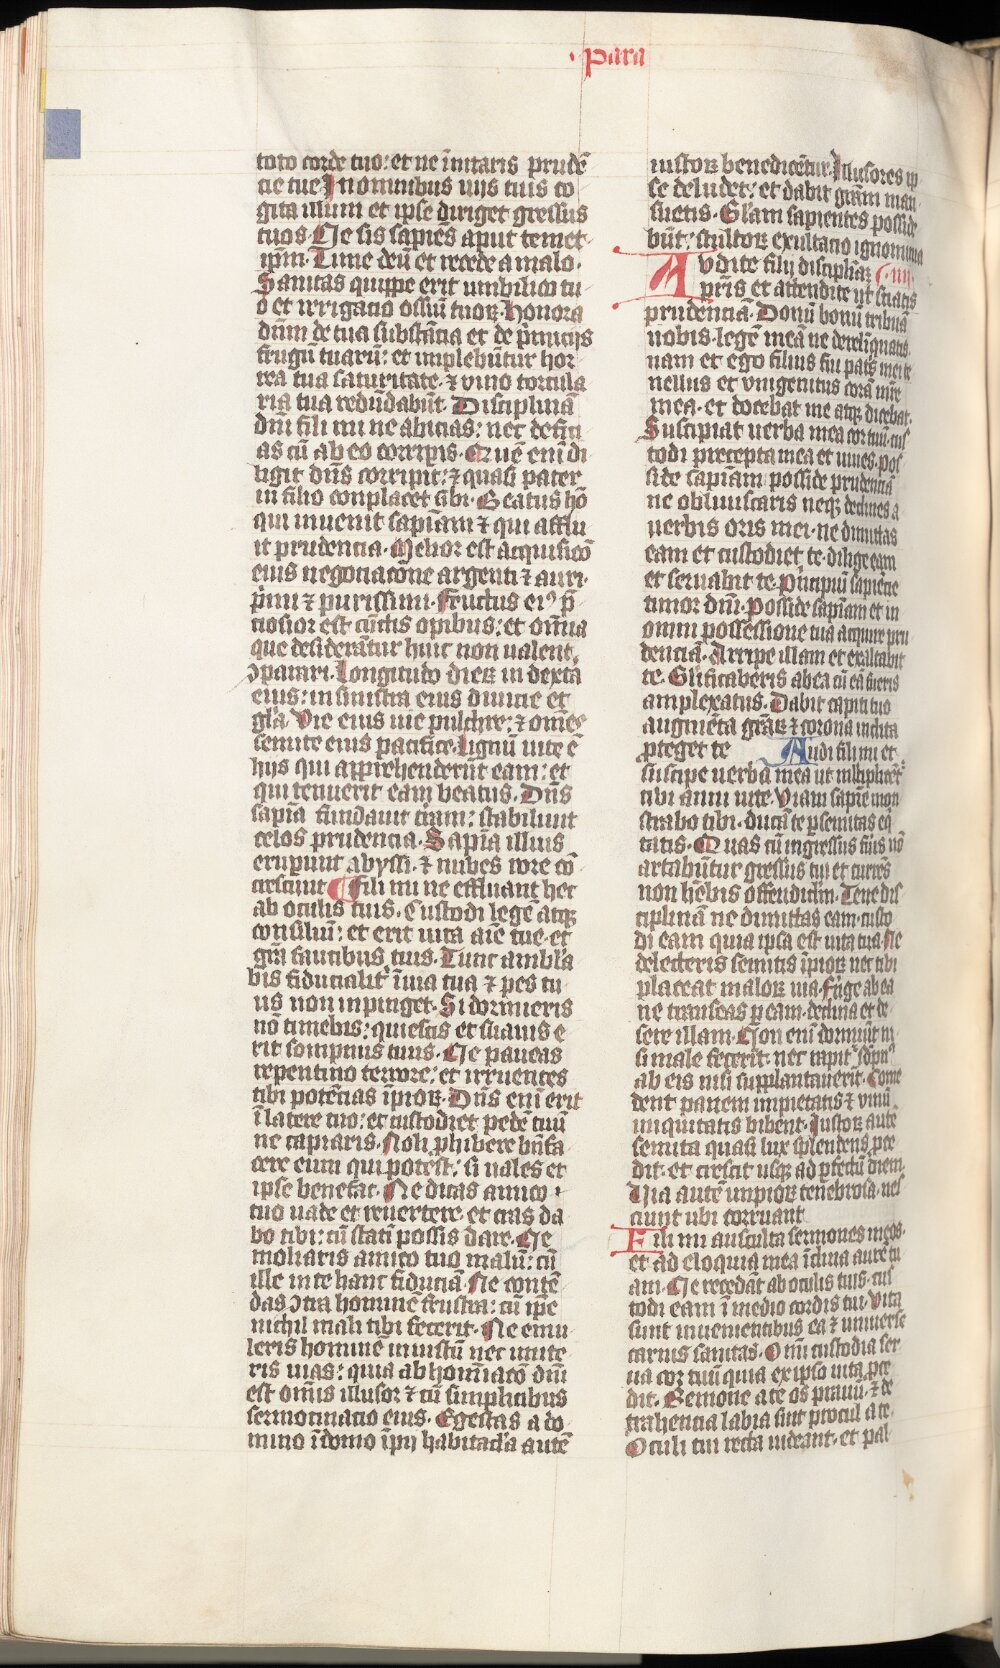 · Para
toto corde tuo: et ne ĩnitaris prudẽ
cie tue In omnibus uijs tuis co
gita illum et ipse diriget gressus
tuos · Ne sis sapiẽs aput temet
ipm̃ · Time deũ et recede a malo ·
Sanitas quippe erit umbilico tu
o et irrigacio ossiũ tuoꝝ · Honora
dñm de tua substãcia et de p̃micijs
frugũ tuarũ: et implebũtur hor
rea tua saturitate · ⁊ vino torcula
ria tua redũdabũt · Disciplinã
dñi fili mi ne abicias: nec defici
as cũ ab eo corripis · Quẽ eni di
ligit dñs corripit: ⁊ quasi pater
in filio conplacet sibi · Beatus hõ
qui inuenit sapiãm ⁊ qui afflu
it prudencia · Melior est acquisicõ
eius negociacõne argenti ⁊ auri ·
p̃mi ⁊ purissimi · Fructus eiꝰ p̃
ciosior est cũctis opibus: et om̃ia
que desiderãtur huic non ualent
ꝯparari · Longitudo dieꝝ in dexta
eius: in sinistra eius diuicie et
gl̃a · Vie eius uie pulchre: ⁊ om̃es
semite eius pacifice · Lignũ uite ẽ
hijs qui apprehenderit eam: et
qui tenuerit eam beatus · Dñs
sapĩa fundauit t̃ram: stabiliuit
celos prudencia · Sapĩa illius
erupuut abyssi · ⁊ nubes rore cõ
crescunt ¶ Fili mi ne effluant hec
ab oculis tuis · Custodi legẽ atqꝫ
consiliũ: et erit uita aĩe tue · et
grã faucibus tuis · Tunc ambla
bis fiducialit̃ ĩ uia tua ⁊ pes tu
us non inpinget · Si dormieris
nõ timebis: quiesces et suauis e
rit sompnus tuus · Ne paueas
repentino terrore: et irruentes
tibi potẽcias ĩpioꝝ · Dñs eni erit
ĩ latere tuo: et custodiet pedẽ tuũ
ne capiaris · Noli phibere bñfa
cere eum qui potest: si uales et
ipse benefac · Ne dicas amico
tuo uade et reuertere · et cras da
bo tibi: cũ stati possis dare · Ne
moliaris amico tuo malũ: cũ
ille in te hanc fiduciã · Ne contẽ
das ꝯtra hominẽ frustra: cũ ip̃e
nichil mali tibi fecerit · Ne emu
leris hominẽ iniustũ nec imite
ris uias: quia abhomiacõ dñi
est om̃is illusor ⁊ cũ simplicibus
sermocinacio eius · Egestas a do
mino ĩ domo ĩpij habitacl̃a autẽ
iustoꝝ benedicẽtur · Illusores ip
se deludet: et dabit grãm man
suetis · Gl̃am sapientes posside
bũt: stultoꝝ exultacio ignominia
Audite filij disciplinã
pr̃is et attendite ut sciatis
prudenciã · Donũ bonũ tribuã
uobis · legẽ meã ne derelĩquatis ·
nam et ego filius fui patris mei te
nellus et vnigenitus corã mr̃e
mea · et docebat me atqꝫ dicebat ·
Suscipiat uerba mea cor tuũ · cus
todi precepta mea et uiues · pos
side sapiãm posside prudenciã
ne obliuiscaris neqꝫ declines a
uerbis oris mei · ne dimittas
eam et custodiet te · dilige eam
et seruabit te · P̃ncipiũ sapiẽcie
timor dñi · Posside sapiãm et in
omni possessione tua acquire pru
denciã · Arripe illam et exaltabit
te · Gl̃ificaberis ab ea cũ eã fueris
amplexatus · Dabit capiti tuo
augmẽta grãꝝ ⁊ corona inclita
proteget te Audi fili mi et
suscipe uerba mea ut mltiplicẽt̃
tibi anni uite · Viam sapiẽ mon
strabo tibi · ducã te p semitas eq̃
tatis · Quas cũ ingressus fũis nõ
artabũtur gressus tui et currẽs
non hẽbis offendiclm̃ · Tene dis
ciplinã ne dimittas eam · custo
di eam quia ipsa est uita tua · Ne
delecteris semitis ĩpioꝝ nec tibi
placeat maloꝝ uia · Fuge ab ea
ne transeas p eam · declina et de
sere illam · Non eni dormiũt ni
si male fecerĩt · nec rapit̃ sõpnꝰ
ab eis nisi supplantauerĩt · Come
dent panem impietatis ⁊ vinũ
iniquitatis bibent · Iustoꝝ autẽ
semita quasi lux splendens pce
dit · et crescit usqꝫ ad pfectũ diem
Via autẽ impioꝝ tenebrosa · nes
ciunt ubi corruant
Fili mi ausculta sermones meos ·
et ad eloquia mea ĩclina aurẽ tu
am · Ne recedãt ab oculis tuis · cus
todi eam ĩ medio cordis tui · Vita
sunt inuenientibus ea ⁊ uniuerse
carnis sanitas · Omi custodia ser
ua cor tuũ quia ex ipso uita pce
dit · Remoue a te os prauũ · ⁊ de
trahencia labia sint procul a te ·
Oculi tui recta uideant · et pal